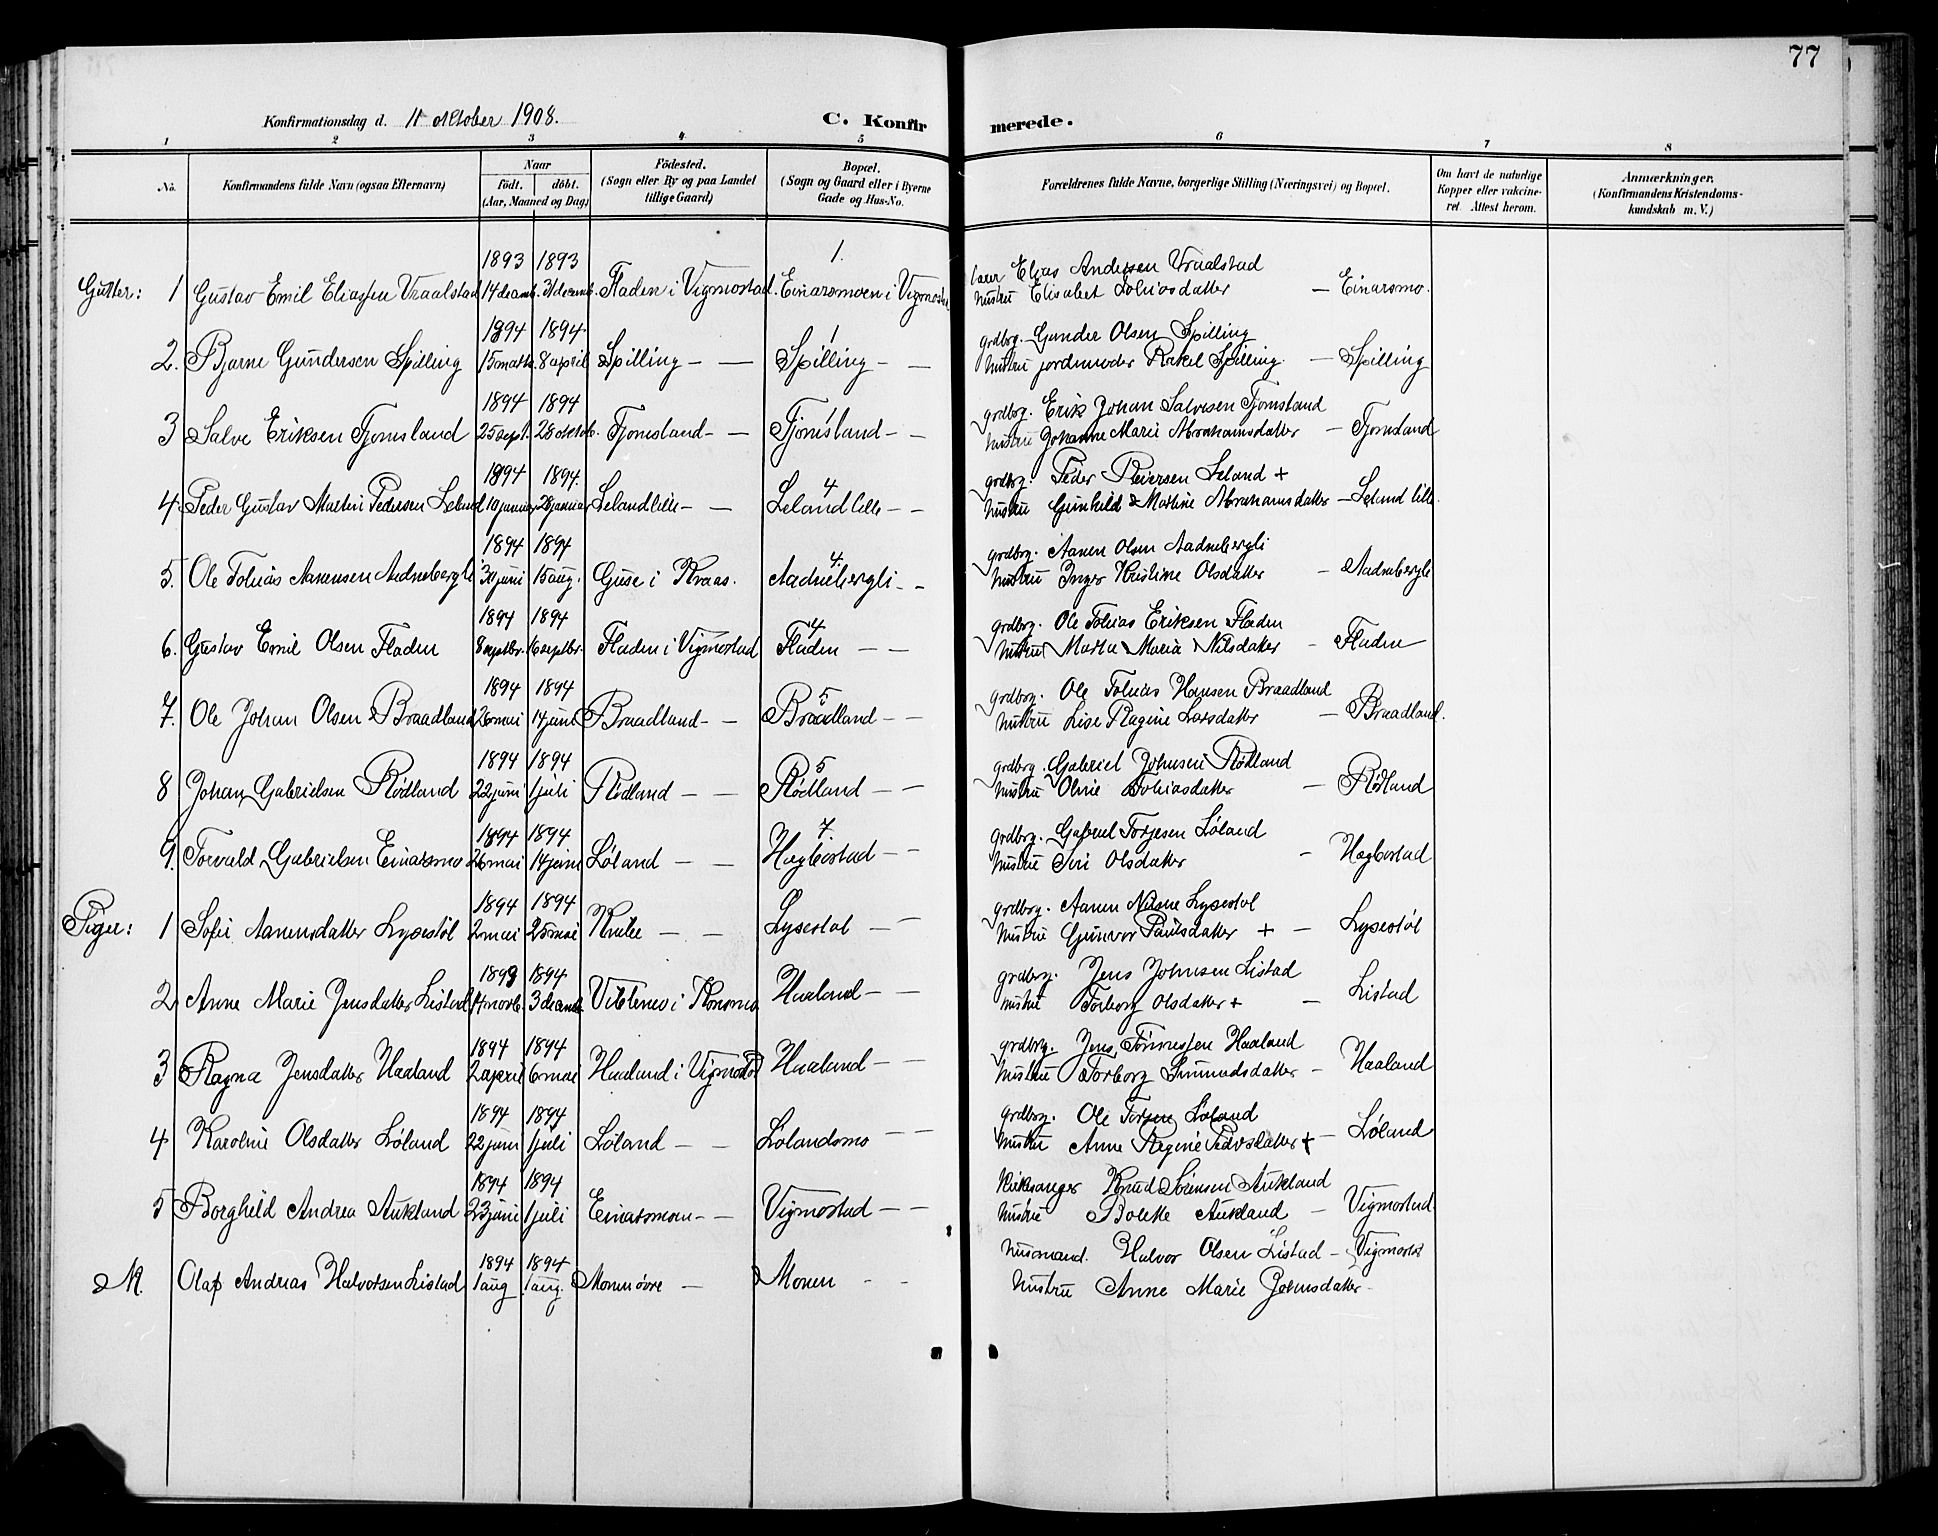 77
Konfirmationsdag d. 11 oktober 1908. C. Konfirmerede.
1 2 3 4 5 6 7 8
No. Konfirmandens fulde Navn (ogsaa Efternavn) Naar födt. döbt. (Aar, Maaned og Dag) Födested. (Sogn eller By og paa Landet tillige Gaard) Bopæl. (Sogn og Gaard eller i Byerne Gade og Hus-No. Forældrenes fulde Navne, borgerlige Stilling (Næringsvei) og Bopæl. Om havt de naturlige Kopper eller vakcineret. Attest herom. Anmærkninger. (Konfirmandens Kristendomskundskab m. V.)
1893 1893 1. Elias Andersen Vraalstad
Gutter: 1 Gustav Emil Eliassen Vraalstad 14 decemb. 31 decemb. Fladen i Vigmostad. Einarsmoen i Vigmostad hustru Elisabet Tobiasdatter — Einarsmo.
1894 1894 1 grdbrg. Gunder Olsen Spilling
2. Bjarne Gundersen Spilling 15 marts. 8 april Spilling — — Spilling — — hustru jordmoder Rakel Spilling. — Spilling
1894 1894 1 grdbrg. Erik Johan Salvesen Fjomsland
3 Salve Eriksen Fjomsland 25 sept. 28 oktob. Fjomsland — — Fjomsland — — hustru Johanne Marie Abrahamsdatter — Fjomsland
1894 1894. 4 grdbrg. Peder Reiersen Leland +
4. Peder Gustav Martin Pedersen Leland 10 januar 28 januar Leland lille — — Leland lille — — hustru Gunhild Martine Abrahamsdatter — Leland lille.
1894 1894 4. grdbrg. Aanen Olsen Aadnebergli
5. Ole Tobias Aanensen Aadnebergli 30 juni 15 aug. Guse i Kraas. Aadnebergli — — hustru Inger Kristine Olsdatter — Aadnebergli
1894 1894 4 grdbrg. Ole Tobias Eriksen Fladen
6. Gustav Emil Olsen Fladen 8 septbr. 16 septbr. Fladen i Vigmostad Fladen — — hustru Marta Maria Nilsdatter — Fladen
1894 1894 5 grdbrg. Ole Tobias Hansen Braadland
7. Ole Johan Olsen Braadland 26 mai 14 juni Braadland — — Braadland — — hustru Lise Ragine Larsdatter — Braadland.
1894 1894 5 grdbrg. Gabriel Johnsen Rødland
8 Johan Gabrielsen Rødland 22 juni 1 juli Rødland — — Rødland — — hustru Oline Tobiasdatter — Rødland
1894 1894 7. grdbrg. Gabriel Torjesen Løland
9. Torvald Gabrielsen Einarsmo 26 mai 14 juni Løland — — Hægbostad — — hustru Siri Olsdatter — Hægbostad
1894 1894 grdbrg. Aanen Lysestøl
Piger: 1 Sofie Aanensdatter Lysestøl 2 mai 25 mai — — Lysestøl — hustru Gunvor Paulsdatter + — Lysestøl
1893 1894 grdbrg. Jens Johnsen Listad
2 Anne Marie Jensdatter Listad novb. 3 Haaland — — hustru Torborg Olsdatter + — Listad
1894 1894 grdbrg. Jens Tønnessen Haaland
3 Ragna Jensdatter Haaland 2 april 6 mai Haaland i Vigmostad Haaland — — hustru Torborg Simundsdatter — Haaland
1894 1894 grdbrg. Ole Torjesen Løland
4 Karoline Olsdatter Løland 22 juni 1 juli Løland — — Lølandsmo — — hustru Anne Regine Pedersdatter + — Løland
1894 1894 Kirkesanger Knud Sørensen Aukland
5 Borghild Andrea Aukland 23 juni 1 juli Einarsmoen — — Vigmostad — — hustru Bolette Aukland — Vigmostad
1894 1894 husmand. Halvor Olsen Listad — Vigmostad
Olaf Andreas Halvorsen Listad 1 aug 1 aug. Monen øvre — Monen — — hustru Anne Marie Johnsdatter —